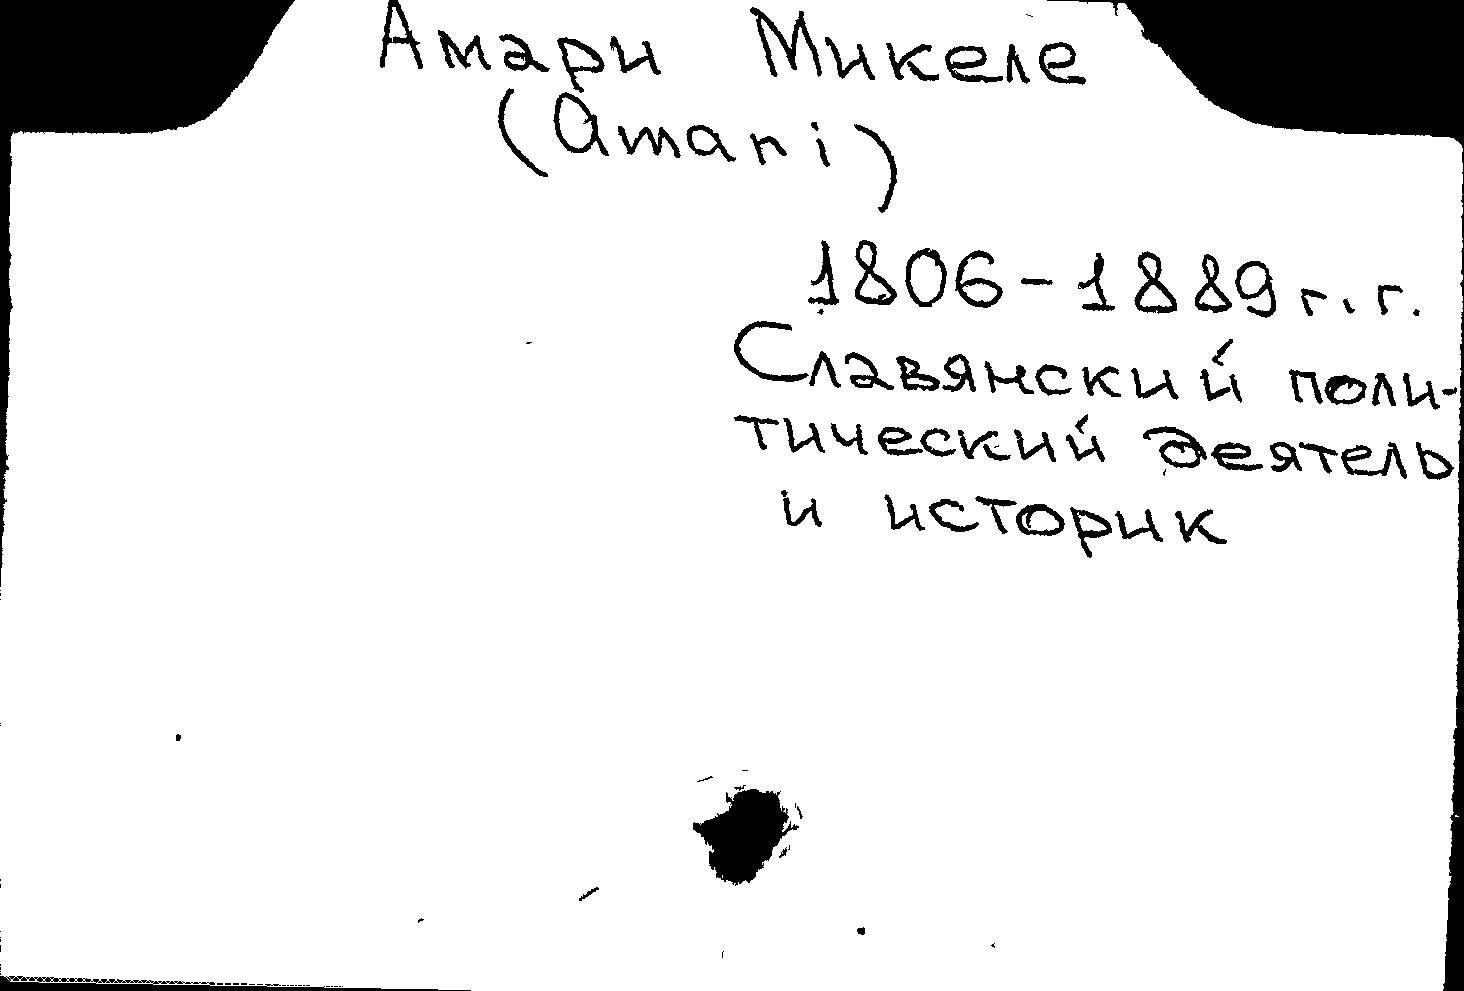 Амари Микеле
(Amari)
1806-1889 г.г.
Славянский поли-
тический деятель
и историк